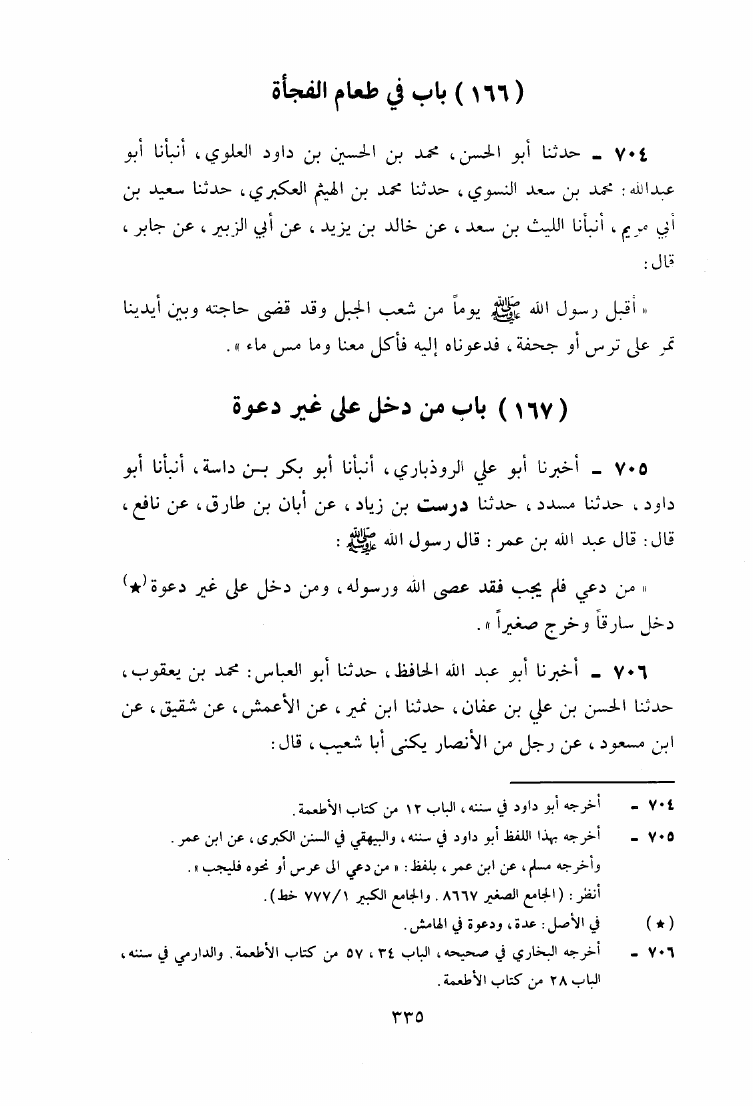 (١٦٦) باب في طعام الفجأة
٧٠٤ ـ حدثنا أبو الحسن، محمد بن الحسين بن داود العلوي، أنبأنا أبو
عبدالله: محمد بن سعد النسوي، حدثنا محمد بن الهيثم العكبري، حدثنا سعيد بن
أبي مريم، أنبأنا الليث بن سعد، عن خالد بن يزيد، عن أبي الزبير، عن جابر،
قال:
« أقبل رسول الله ﷺ يوماً من شعب الجبل وقد قضى حاجته وبين أيدينا
تمر على ترس أو جحفة، فدعوناه إليه فأكل معنا وما مس ماء ».
(١٦٧) باب من دخل على غير دعوة
٧٠٥ ـ أخبرنا أبو علي الروذباري، أنبأنا أبو بكر بـن داسة، أنبأنا أبو
داود، حدثنا مسدد، حدثنا درست بن زياد، عن أبان بن طارق، عن نافع،
قال: قال عبد الله بن عمر: قال رسول الله ﷺ:
« من دعي فلم يجب فقد عصى الله ورسوله، ومن دخل على غير دعوة(★)
دخل سارقاً وخرج صغيراً ».
٧٠٦ ـ أخبرنا أبو عبد الله الحافظ، حدثنا أبو العباس: محمد بن يعقوب،
حدثنا الحسن بن علي بن عفان، حدثنا ابن نمير، عن الأعمش، عن شقيق، عن
ابن مسعود، عن رجل من الأنصار يكنى أبا شعيب، قال:
٧٠٤ ـ أخرجه أبو داود في سننه، الباب ١٢ من كتاب الأطعمة.
٧٠٥ ـ أخرجه بهذا اللفظ أبو داود في سننه، والبيهقي في السنن الكبرى، عن ابن عمر.
وأخرجه مسلم، عن ابن عمر، بلفظ: « من دعي الى عرس أو نحوه فليجب ».
أنظر: (الجامع الصغير ٨٦٦٧. والجامع الكبير ٧٧٧/١ خط).
(★) في الأصل: عدة، ودعوة في الهامش.
٧٠٦ ـ أخرجه البخاري في صحيحه، الباب ٣٤، ٥٧ من كتاب الأطعمة. والدارمي في سننه،
الباب ٢٨ من كتاب الأطعمة.
٣٣٥